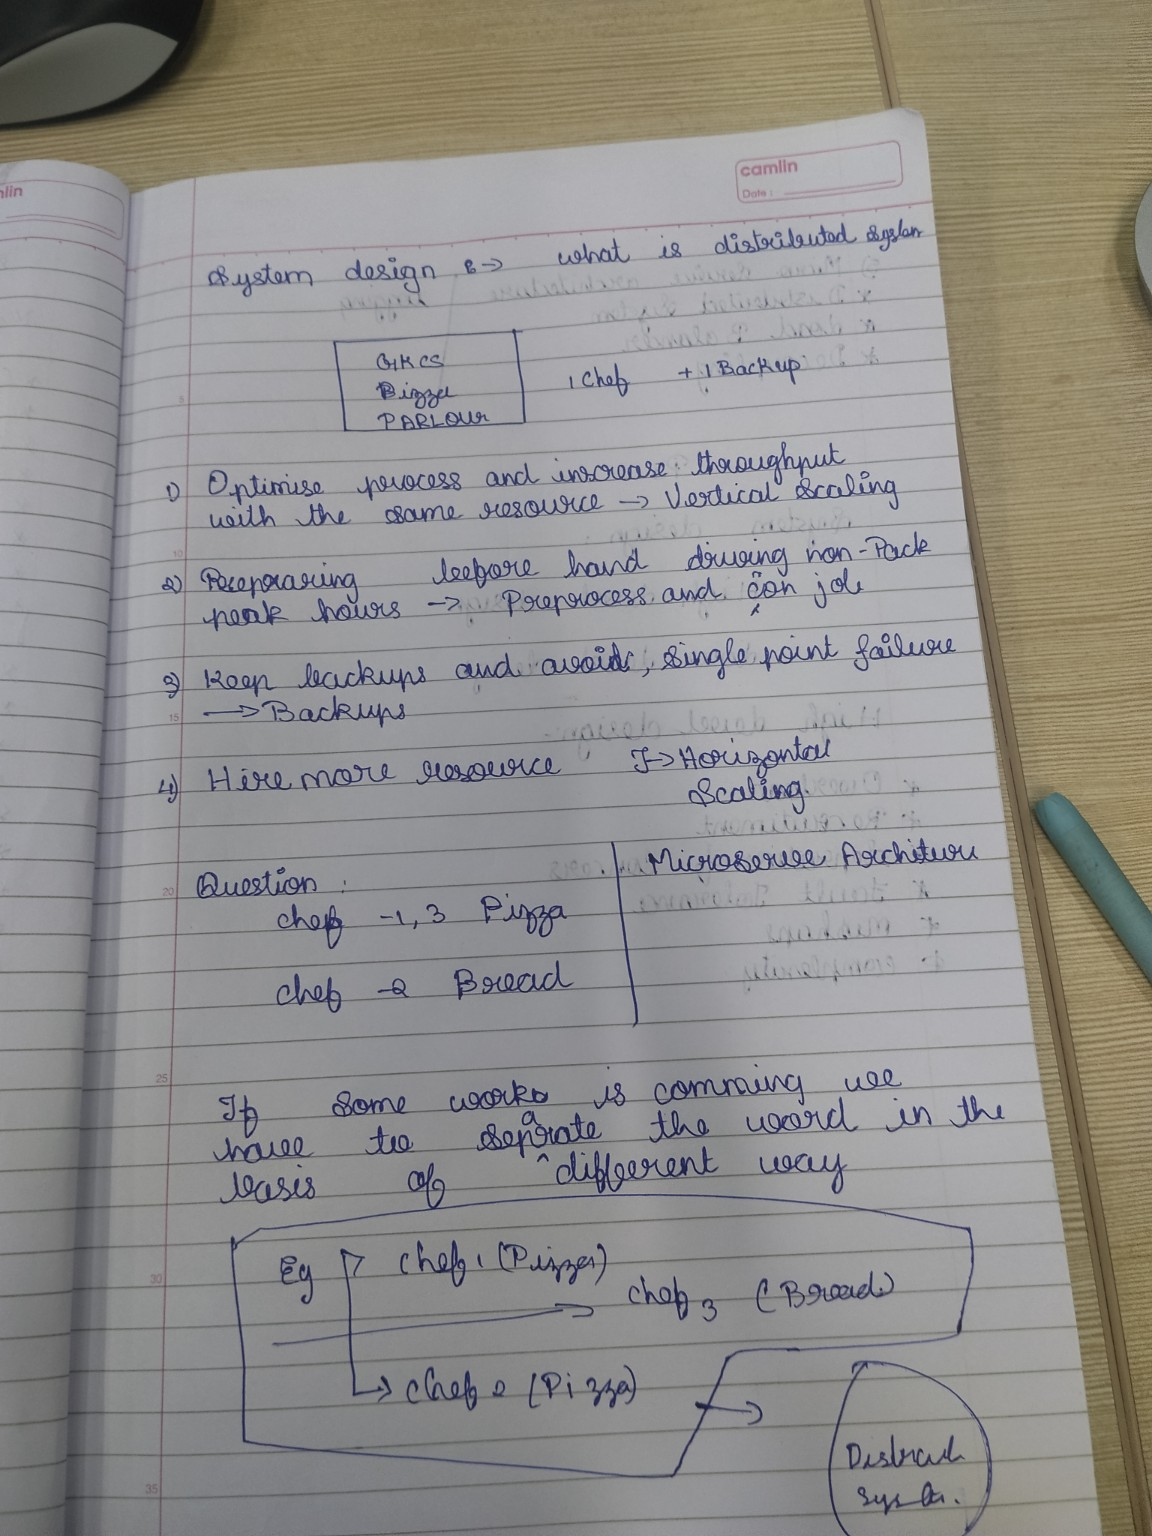 camlin
Date :
System design :-> what is distributed system
GKCS
Pizza
PARLOUR
1 Chef + 1 Backup
1) Optimise process and increase throughput
with the same resource -> Vertical Scaling
2) Preparing before hand during non-Pack
peak hours -> Preprocess and con job
3) Keep backups and avoids, single point failure
-> Backups
4) Hire more resource -> Horizontal
Scaling.
Question :
chef -1, 3 Pizza
chef -2 Bread
Microservice Architeure
If some works is comming we
have to separate the word in the
basis of different way
Eg chef 1 (Pizza)
chef 3 (Bread)
chef 2 (Pizza)